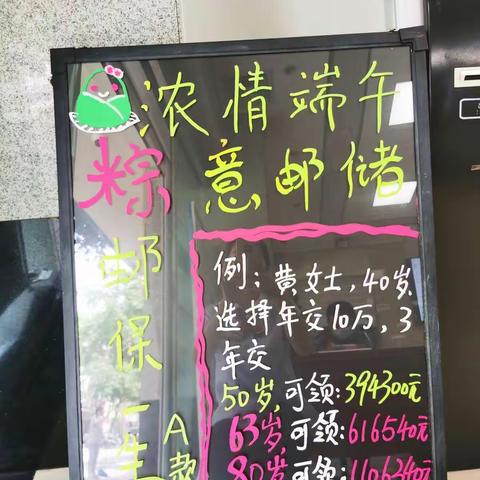 浓情端午
粽意邮储
邮保一生
A款
例:黄女士,40岁
选择年交10万,3
年交
50岁,可领:394300元
63岁,可领:616540元
80岁可领:1106340元